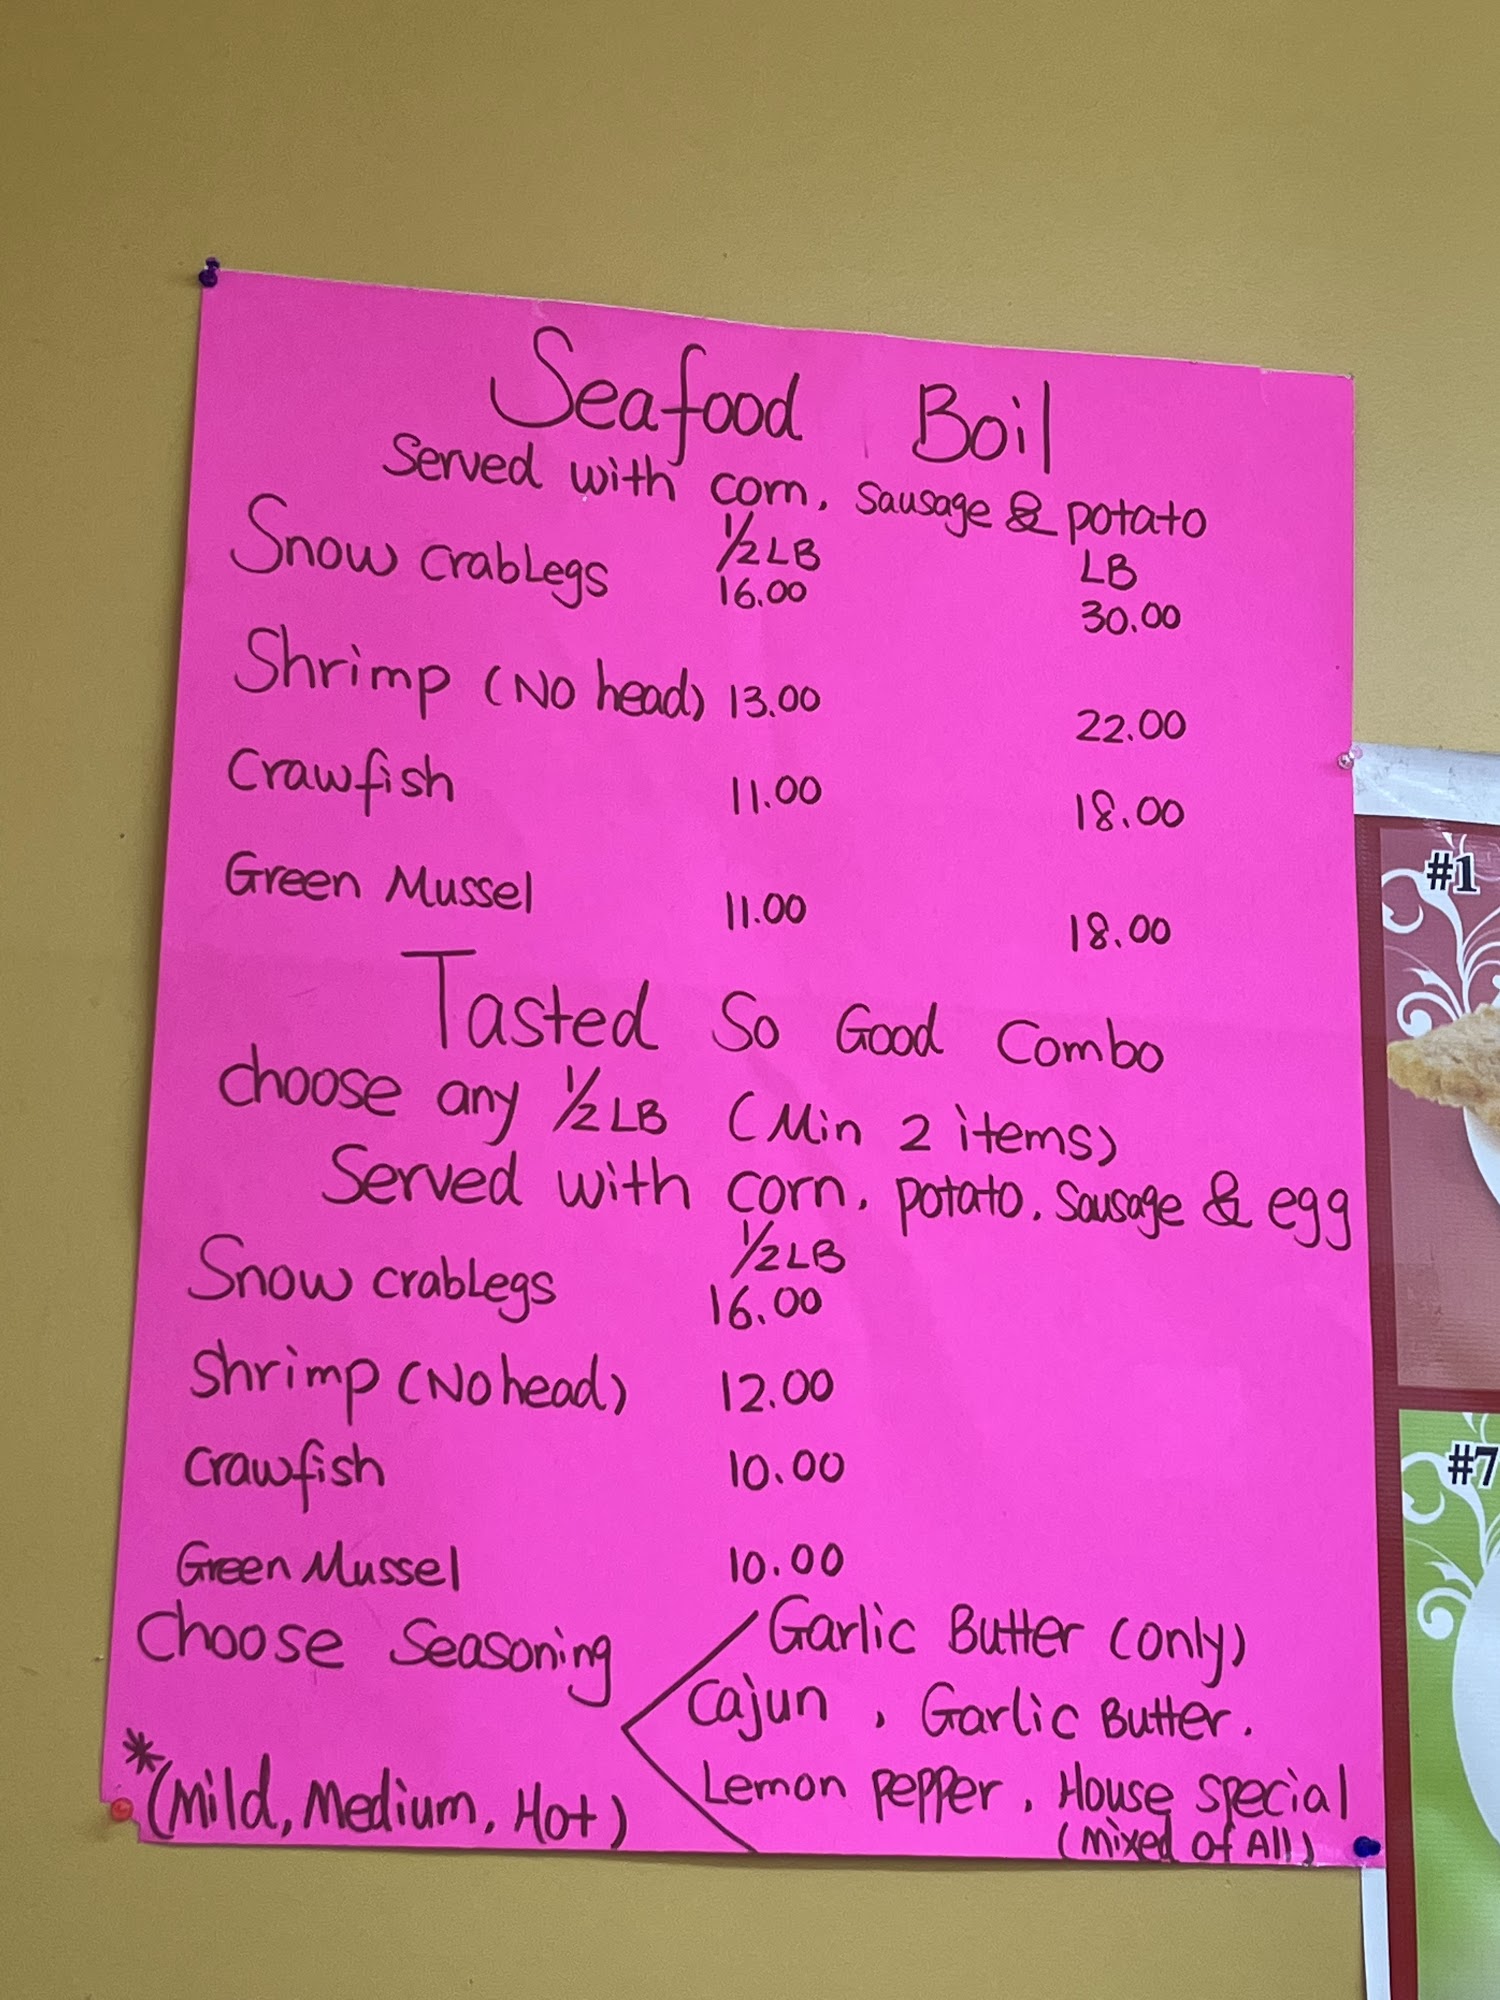 Seafood Boil
Served with corn, Sausage & potato
½ LB LB
Snow crabLegs 16.00 30.00
Shrimp (No head) 13.00 22.00
Crawfish 11.00 18.00
Green Mussel 11.00 18.00
Tasted So Good Combo
choose any ½ LB (Min 2 items)
Served with corn, potato, Sausage & egg
½ LB
Snow crabLegs 16.00
Shrimp (No head) 12.00
Crawfish 10.00
Green Mussel 10.00
Choose Seasoning
Garlic Butter (only)
Cajun, Garlic Butter.
Lemon pepper, House special
(Mixed of All)
*(Mild, Medium, Hot)
#1
#7